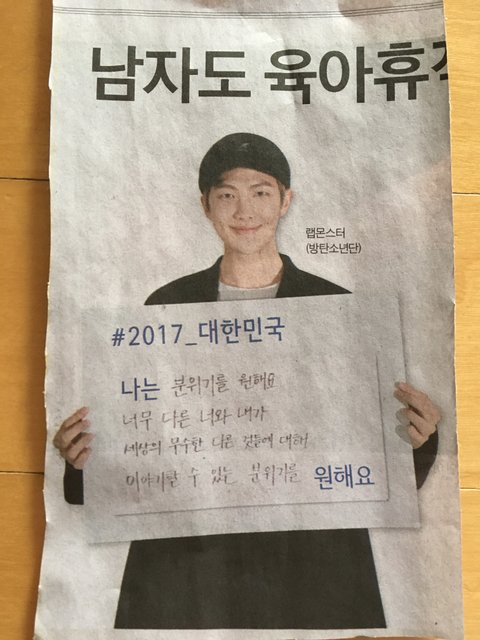 남자도 육아휴직
랩몬스터
(방탄소년단)
#2017_대한민국
나는 분위기를 원해요
너무 다른 너와 내가
세상의 무수한 다른 것들에 대해
이야기할 수 있는 분위기를 원해요